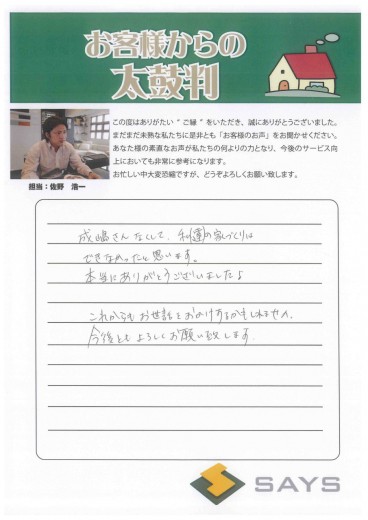 お客様からの
太鼓判
この度はありがたい“ご縁”をいただき、誠にありがとうございました。
まだまだ未熟な私たちに是非とも「お客様のお声」をお聞かせください。
あなた様の素直なお声が私たちの何よりの力となり、今後のサービス向
上においても非常に参考になります。
お忙しい中大変恐縮ですが、どうぞよろしくお願い致します。
担当：佐野 浩一
成嶋さんなくして、私達の家づくりは
できなかったと思います。
本当にありがとうございましたよ
これからもお世話をおかけするかもしれません。
今後ともよろしくお願い致します。
SAYS